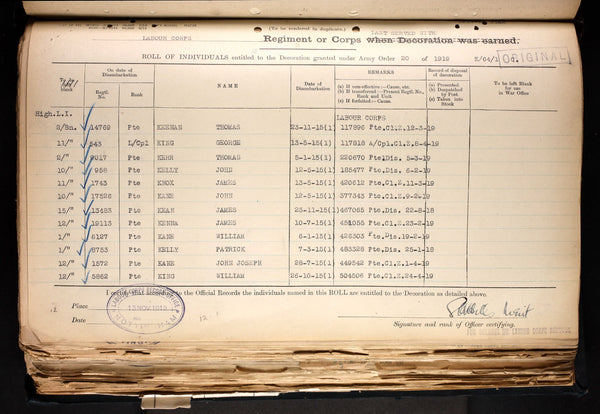 (To be rendered in duplicate.)
LABOUR CORPS LAST SERVED WITH
Regiment or Corps when Decoration was earned.
ROLL OF INDIVIDUALS entitled to the Decoration granted under Army Order 20 of 1919
ORIGINAL
On date of Disembarkation
Regtl. No.
Rank
NAME
Date of Disembarkation
REMARKS
(a) If non-effective:—Cause, etc.
(b) If transferred:—Present Regtl. No., Rank and Unit.
(c) If forfeited:—Cause.
Record of disposal of decoration
(a) Presented
(b) Despatched by Post
(c) Taken into Stock
To be left Blank for use in War Office
High.L.I. LABOUR CORPS
2/Bn. 14769 Pte KEENAN THOMAS 23-11-15(1) 117896 Pte.Cl.Z.12-3-19
11/" 543 L/Cpl KING GEORGE 13-5-15(1) 117818 A/Cpl.Cl.Z.8-4-19
2/" 9017 Pte KERR THOMAS 5-1-15(1) 220670 Pte.Dis. 5-3-19
10/" 958 Pte KELLY JOHN 12-5-15(1) 183477 Pte.Dis. 6-2-19
11/" 1743 Pte KNOX JAMES 13-5-15(1) 420612 Pte.Cl.Z.11-3-19
10/" 17526 Pte KANE JOHN 12-5-15(1) 377343 Pte.Cl.Z.9-2-19
15/" 13423 Pte KEAN JAMES 23-11-15(1) 467065 Pte.Dis. 22-8-18
12/" 19113 Pte KENNA JAMES 10-7-15(1) 451055 Pte.Cl.Z.23-3-19
1/" 6127 Pte KANE WILLIAM 6-1-15(1) 426303 Pte.Dis.19-2-19
1/" 8753 Pte KELLY PATRICK 7-3-15(1) 483328 Pte.Dis. 25-1-18
12/" 1572 Pte KANE JOHN JOSEPH 28-7-15(1) 449542 Pte.Cl.Z.1-4-19
12/" 5862 Pte KING WILLIAM 26-10-15(1) 504506 Pte.Cl.Z.24-4-19
I certify that according to the Official Records the individuals named in this ROLL are entitled to the Decoration as detailed above.
Place
Date
LABOUR CORPS RECORD OFFICE
13 NOV. 1919
NOTTINGHAM
Signature and rank of Officer certifying.
LABOUR CORPS RECORDS